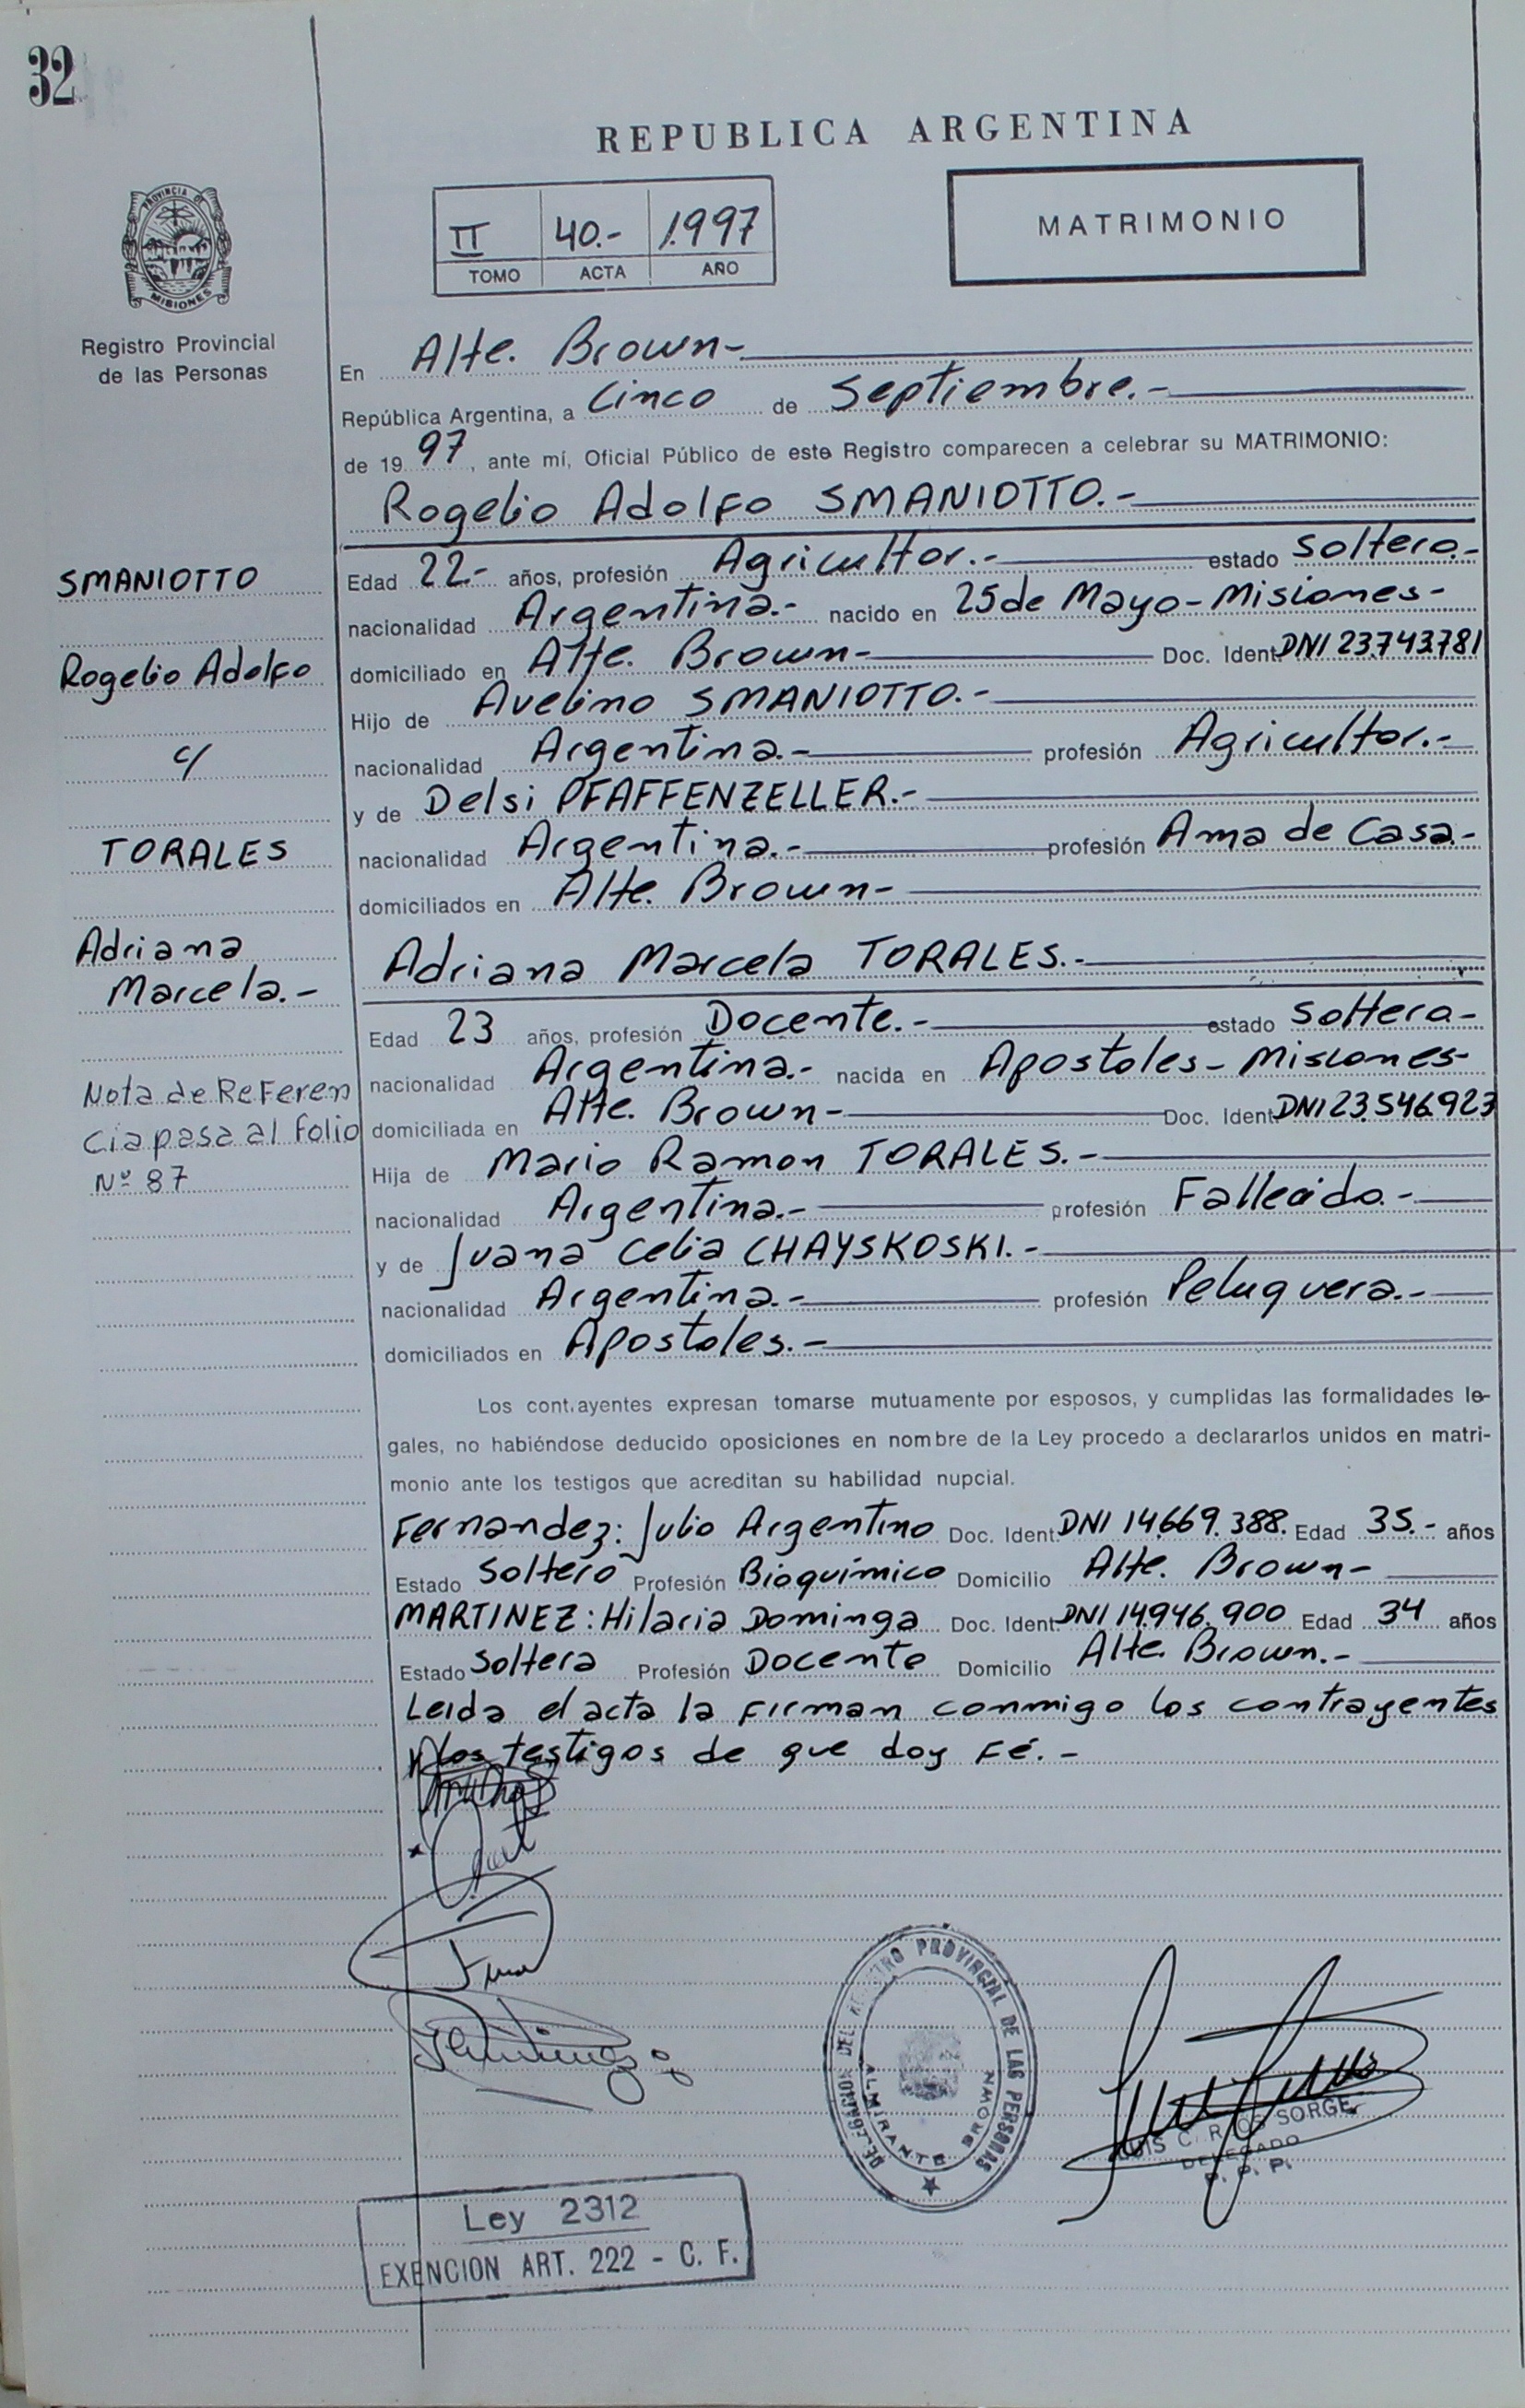 32
REPUBLICA ARGENTINA
PROVINCIA DE
MISIONES
Registro Provincial
de las Personas
II 40.- 1.997
TOMO ACTA AÑO
MATRIMONIO
En Alte. Brown-
República Argentina, a Cinco de Septiembre.-
de 19 97, ante mí, Oficial Público de este Registro comparecen a celebrar su MATRIMONIO:
Rogelio Adolfo SMANIOTTO.-
Edad 22.- años, profesión Agricultor.- estado Soltero.-
nacionalidad Argentina.- nacido en 25 de Mayo - Misiones-
domiciliado en Alte. Brown- Doc. Ident. DNI 23.743.781
Hijo de Avelino SMANIOTTO.-
nacionalidad Argentina.- profesión Agricultor.-
y de Delsi PFAFFENZELLER.-
nacionalidad Argentina.- profesión Ama de Casa.-
domiciliados en Alte. Brown-
SMANIOTTO
Rogelio Adolfo
c/
TORALES
Adriana
Marcela.-
Nota de Referen
cia pasa al folio
Nº 87
Adriana Marcela TORALES.-
Edad 23 años, profesión Docente.- estado Soltera-
nacionalidad Argentina.- nacida en Apostoles - Misiones-
domiciliada en Alte. Brown- Doc. Ident. DNI 23.546.923
Hija de Mario Ramon TORALES.-
nacionalidad Argentina.- profesión Fallecido.-
y de Juana Celia CHAYSKOSKI.-
nacionalidad Argentina.- profesión Peluquera.-
domiciliados en Apostoles.-
Los contrayentes expresan tomarse mutuamente por esposos, y cumplidas las formalidades le-
gales, no habiéndose deducido oposiciones en nombre de la Ley procedo a declararlos unidos en matri-
monio ante los testigos que acreditan su habilidad nupcial.
Fernandez: Julio Argentino Doc. Ident. DNI 14.669.388. Edad 35.- años
Estado Soltero Profesión Bioquímico Domicilio Alte. Brown-
MARTINEZ: Hilaria Dominga Doc. Ident. DNI 14.946.900 Edad 34 años
Estado Soltera Profesión Docente Domicilio Alte. Brown.-
Leida el acta la firman conmigo los contrayentes
y los testigos de que doy Fé.-
DELEGACION DEL REGISTRO PROVINCIAL DE LAS PERSONAS
ALMIRANTE BROWN
LUIS CARLOS SORGE
DELEGADO
R. P. P.
Ley 2312
EXENCION ART. 222 - C. F.